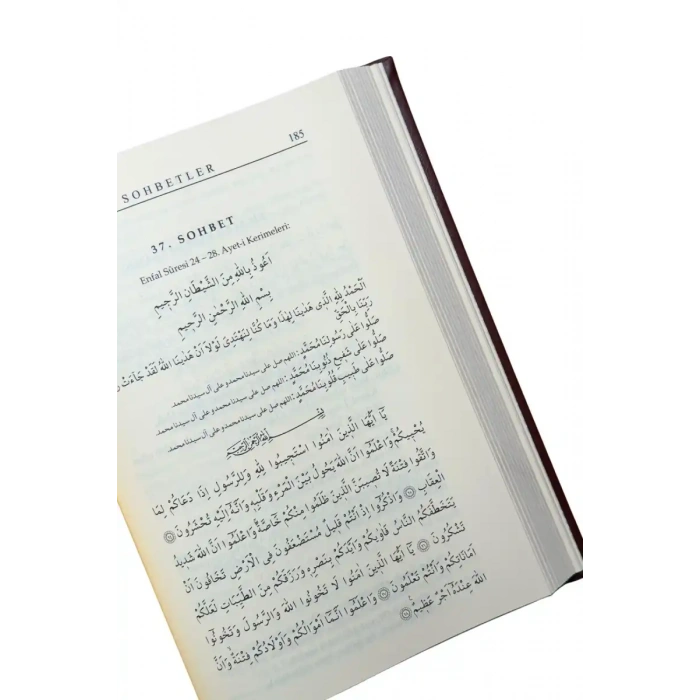 185
SOHBETLER
37. SOHBET
Enfal Sûresi 24 – 28. Ayet-i Kerimeleri:
اَعُوذُ بِاللّٰهِ مِنَ الشَّيْطَانِ الرَّجِيمِ
بِسْمِ اللّٰهِ الرَّحْمٰنِ الرَّحِيمِ
اَلْحَمْدُ لِلّٰهِ الَّذِى هَدٰينَا لِهٰذَا وَمَا كُنَّا لِنَهْتَدِىَ لَوْلَا اَنْ هَدٰينَا اللّٰهُ لَقَدْ جَاءَتْ
رَبِّنَا بِالْحَقِّ
صَلُّوا عَلٰى رَسُولِنَا مُحَمَّدٍ: اللهم صل على سيدنا محمد و على آل سيدنا محمد
صَلُّوا عَلٰى شَفِيعِ ذُنُوبِنَا مُحَمَّدٍ: اللهم صل على سيدنا محمد و على آل سيدنا محمد
صَلُّوا عَلٰى طَبِيبِ قُلُوبِنَا مُحَمَّدٍ: اللهم صل على سيدنا محمد و على آل سيدنا محمد
يَا اَيُّهَا الَّذِينَ اٰمَنُوا اسْتَجِيبُوا لِلّٰهِ وَلِلرَّسُولِ اِذَا دَعَاكُمْ لِمَا
يُحْيِيكُمْ وَاعْلَمُوا اَنَّ اللّٰهَ يَحُولُ بَيْنَ الْمَرْءِ وَقَلْبِهِ وَاَنَّهُ اِلَيْهِ تُحْشَرُونَ
وَاتَّقُوا فِتْنَةً لَا تُصِيبَنَّ الَّذِينَ ظَلَمُوا مِنْكُمْ خَاصَّةً وَاعْلَمُوا اَنَّ اللّٰهَ شَدِيدُ
الْعِقَابِ وَاذْكُرُوا اِذْ اَنْتُمْ قَلِيلٌ مُسْتَضْعَفُونَ فِى الْاَرْضِ تَخَافُونَ اَنْ
يَتَخَطَّفَكُمُ النَّاسُ فَاٰوٰيكُمْ وَاَيَّدَكُمْ بِنَصْرِهِ وَرَزَقَكُمْ مِنَ الطَّيِّبَاتِ لَعَلَّكُمْ
تَشْكُرُونَ يَا اَيُّهَا الَّذِينَ اٰمَنُوا لَا تَخُونُوا اللّٰهَ وَالرَّسُولَ وَتَخُونُوا
اَمَانَاتِكُمْ وَاَنْتُمْ تَعْلَمُونَ وَاعْلَمُوا اَنَّمَا اَمْوَالُكُمْ وَاَوْلَادُكُمْ فِتْنَةٌ وَاَنَّ
اللّٰهَ عِنْدَهُ اَجْرٌ عَظِيمٌ